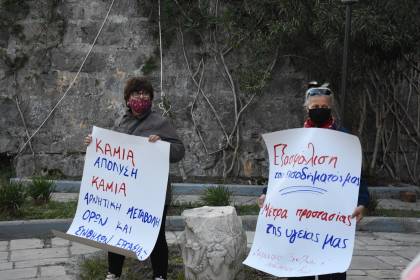 ΚΑΜΙΑ
ΑΠΟΛΥΣΗ
ΚΑΜΙΑ
ΑΡΝΗΤΙΚΗ ΜΕΤΑΒΟΛΗ
ΟΡΩΝ ΚΑΙ
Εξασφάλιση
του εισοδήματος μας
Μέτρα προστασίας
της υγείας μας